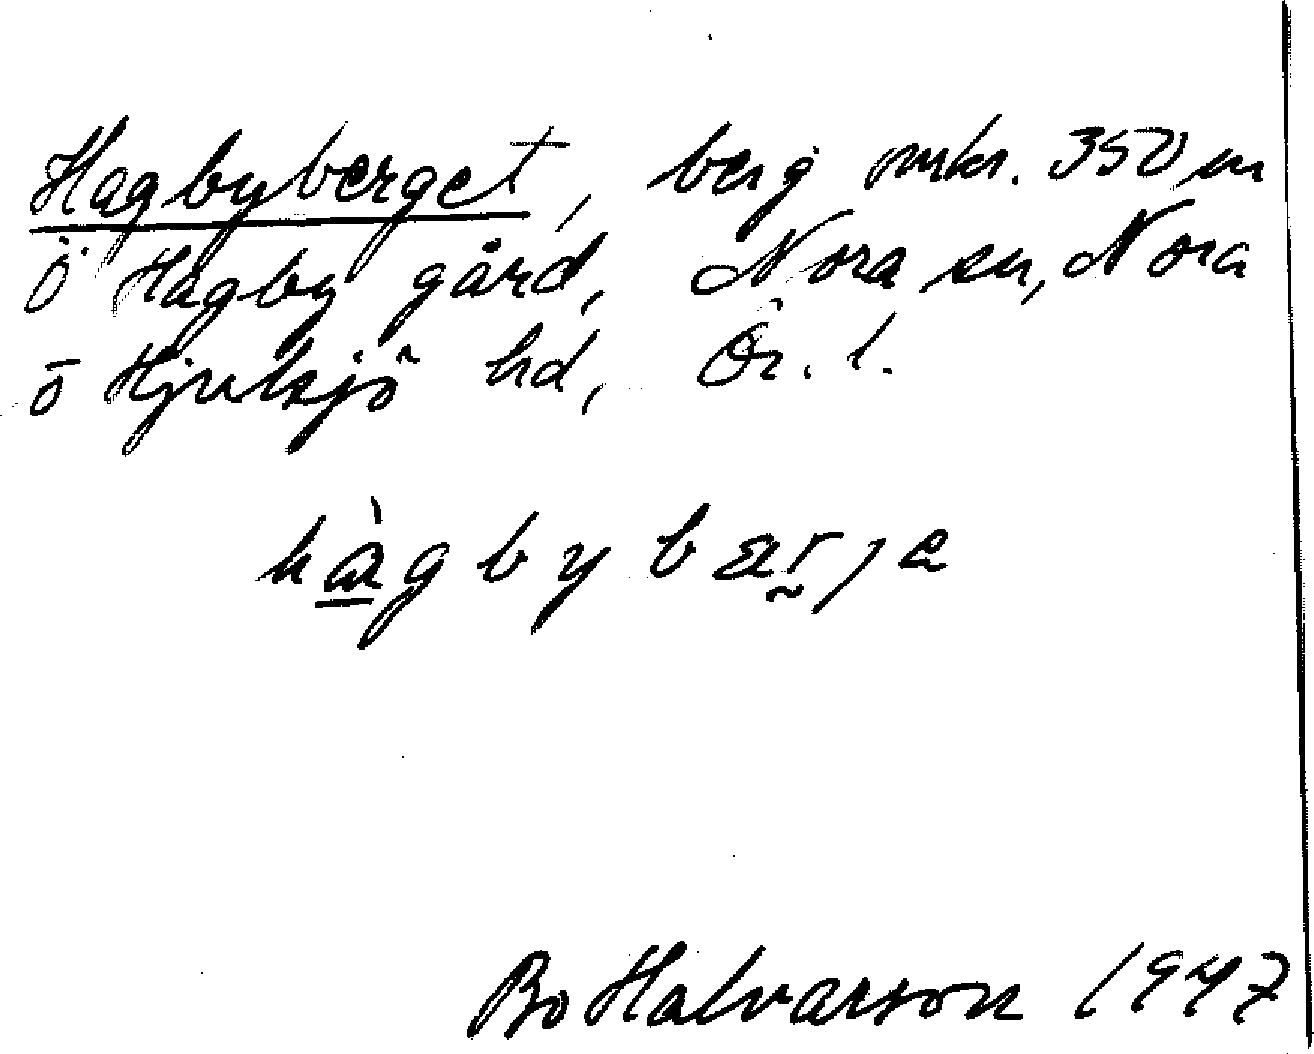 Hagbyberget, berg omkr. 350 m
Ö Hagby gård, Nora sn, Nora
o Hjulsjö hd, Ör. l.
hàgbybærje
Bo Halvarson 1947